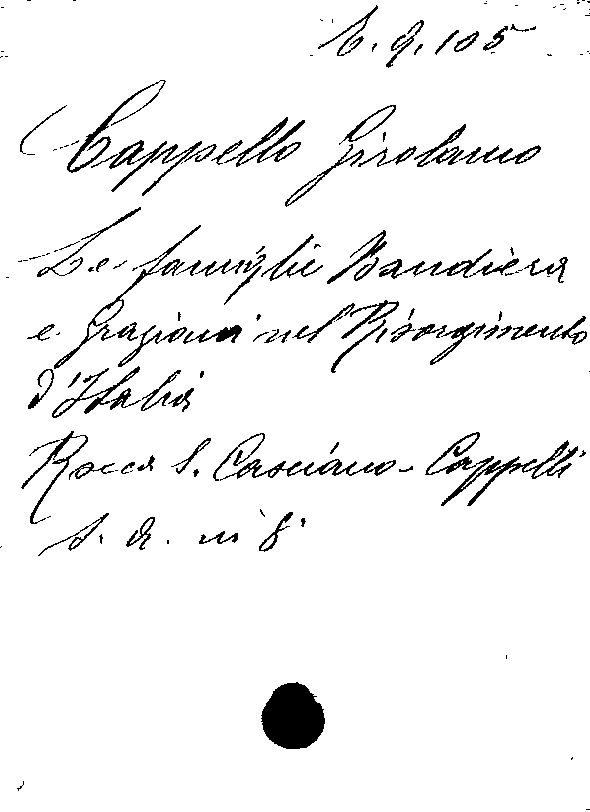 E. 9. 105
Cappello Girolamo
Le famiglie Bandiera
e Graziani nel Risorgimento
d'Italia
Rocca S. Casciano - Cappelli
s. a. in 8°